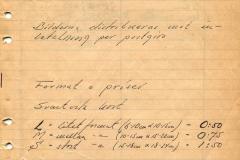 Bilderna distribueras mot in-
betalning per postgiro
Format o priser
Svartvita kort
L = litet format (6-10cm x 10-15cm) - 0:50
M = mellan -"- (10-15cm x 15-20cm) - 0:75
S = stort -"- (15-18cm x 18-24cm) - 1:50